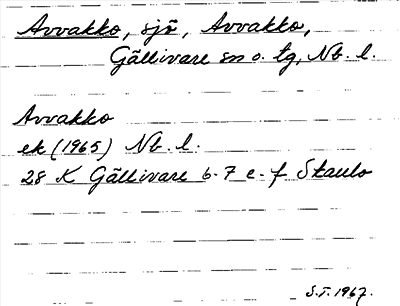 Avvakko, sjö, Avvakko,
Gällivare sn o. tg, Nb. l.
Avvakko
ek (1965) Nb. l.
28 K Gällivare 6-7 e-f Staulo
S.T. 1967.